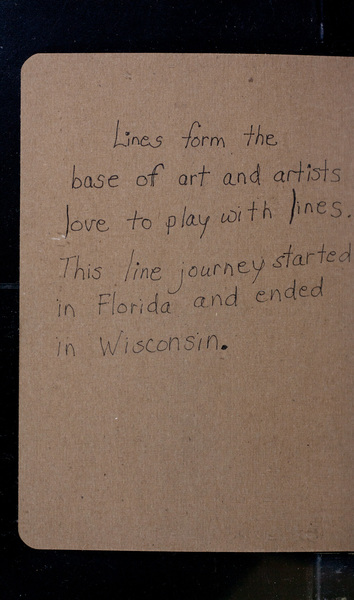 Lines form the
base of art and artists
love to play with lines.
This line journey started
in Florida and ended
in Wisconsin.